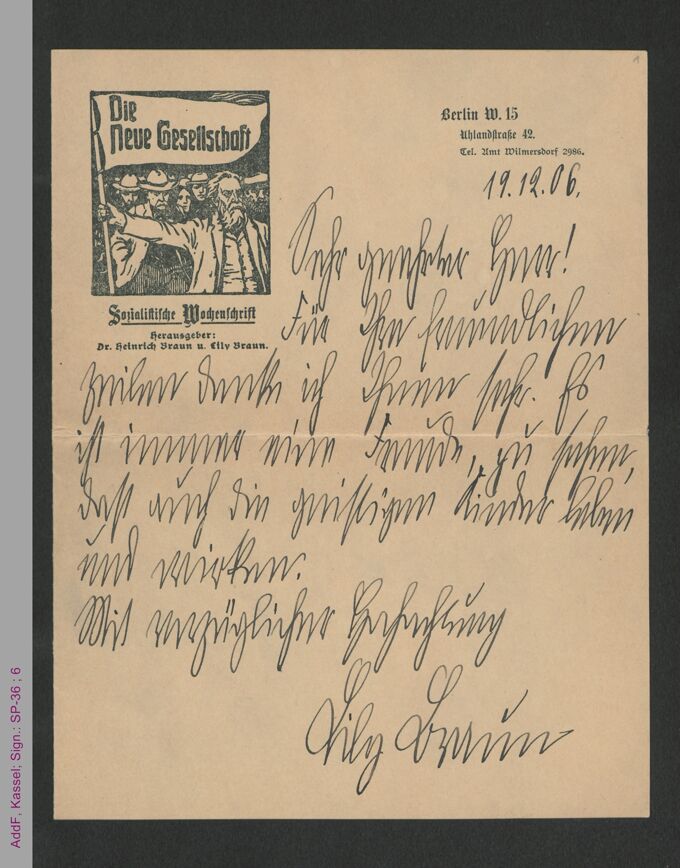 Die
Neue Gesellschaft
Sozialistische Wochenschrift
Herausgeber:
Dr. Heinrich Braun u. Lily Braun.
Berlin W. 15
Uhlandstraße 42.
Tel. Amt Wilmersdorf 2986.
19.12.06.
Sehr geehrter Herr!
Für Ihre freundlichen
Zeilen danke ich Ihnen sehr. Es
ist immer eine Freude, zu sehen,
daß auch die geistigen Kinder leben
und wirken.
Mit vorzüglicher Hochachtung
Lily Braun
1
AddF, Kassel; Sign.: SP-36 ; 6